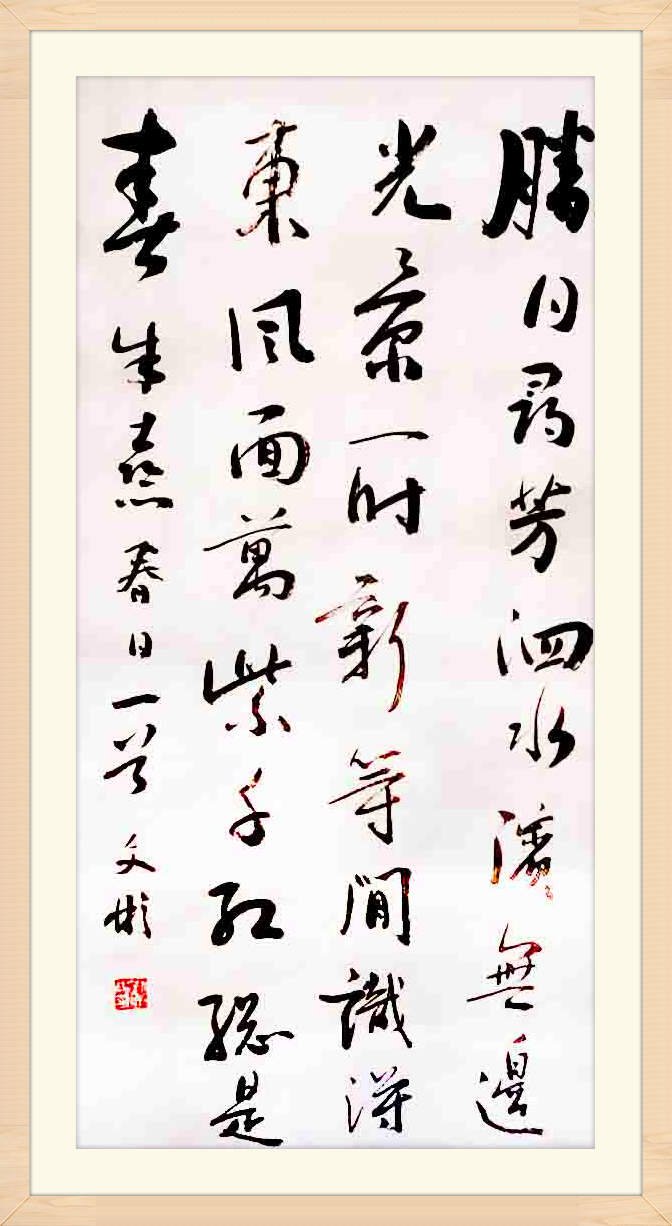 勝日尋芳泗水濱無邊
光景一時新等閒識得
東風面萬紫千紅總是
春朱熹春日一首文彬